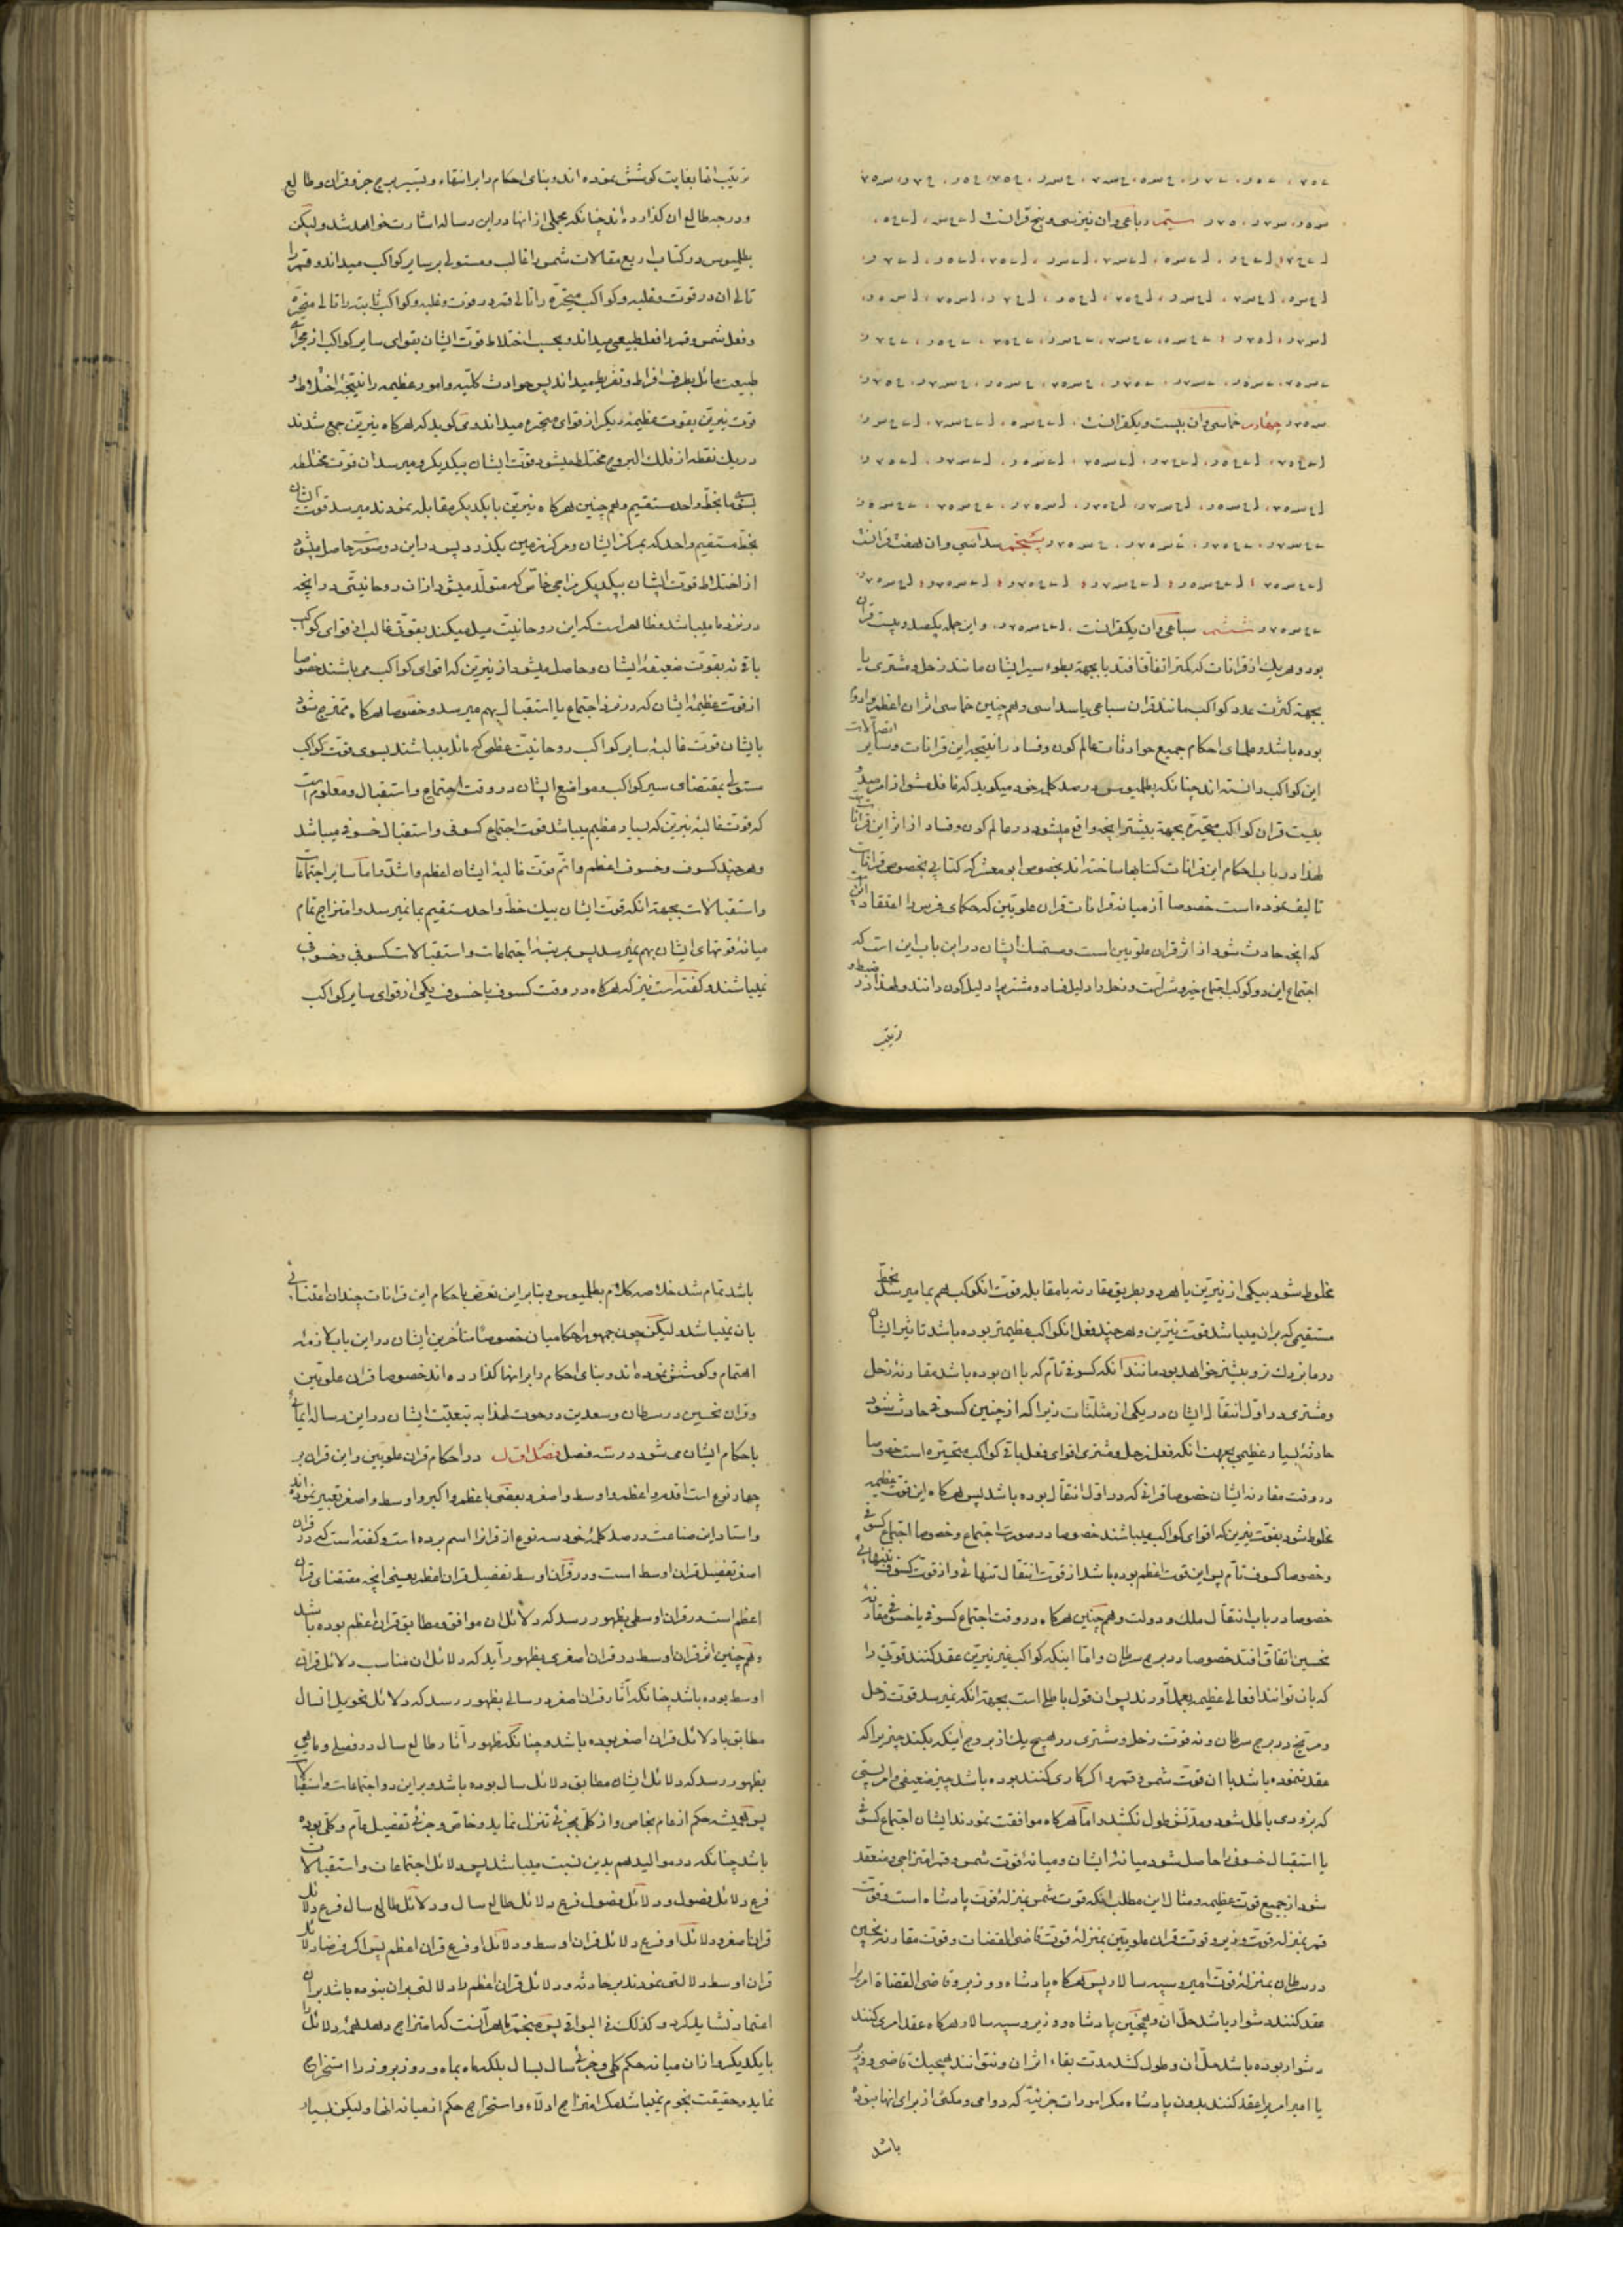 سیّم رباعی و ان نیز سی و پنج قرانست
چهارم خماسی و ان بیست و یکقرانست
پنجم سداسی و ان هفت قرانست
ششم سباعی و ان یکقرانست و این جمله یکصد و بیست قران
بود و هر یك از قرانات که کمتر اتفاق افتد یا بجهة بطوء سیر ایشان مانند زحل و مشتری یا
بجهة کثرت عدد کواکب مانند قران سباعی یا سداسی و همچنین خماسی اثر ان اعظم و ادوم
بوده باشد و علمای احکام جمیع حوادثات عالم کون و فساد را نتیجه این قرانات و سایر اتصالات
این کواکب دانسته اند چنانکه بطلمیوس در صد کلمه خود میکوید که غافل مشو از امر صد و
بیست قران کواکب متحیّره بجهة بیشتر انچه واقع میشود در عالم کون و فساد از اثر این قرانات
لهذا در باب احکام این قرانات کتابها ساخته اند بخصوص ابو معشر که کتابی بخصوص قرانات
تالیف نموده است خصوصا از میانه قرانات قران علویّین که حکمای فرس را اعتقاد
که انچه حادث شود از اثر قران علویین است و متمسك ایشان در این باب این است که
اجتماع این دو کوکب اجتماع خیر و شر است و زحل را دلیل فساد و مشتریرا دلیل کون دانند و لهذا در ضبط و
ترتیب
ترتیب انها بغایت کوشش نموده اند و بنای احکام را بر انتقاء و تسییر برج جزو قران و طالع
و درجه طالع ان کذارده اند چنانکه مجملی از انها در این رساله اشارت خواهد شد و لیکن
بطلمیوس در کتاب اربع مقالات شمس را غالب و مستولی بر سایر کواکب میداند و قمر را
تالی ان در قوت و غلبه و کواکب متحیّره را تالی قمر در قوت و غلبه و کواکب ثابته را تالی متحیّره
و فعل شمس و قمر را فعل طبیعی میداند و بحسب اختلاط قوت ایشان بقوای سایر کواکب از مجرای
طبیعت مائل بطرف افراط و تفریط میداند پس حوادث کلّیه و امور عظیمه را نتیجه اختلاط
قوت نیرین بقوت عظیمه دیکر از قوای متحیره میداند و می کوید که هر کاه نیرین جمع شدند
در یك نقطه از فلك البروج مختلط میشود قوت ایشان بیکدیکر و میرسد ان قوت مختلطه
بسوی ما بخطّ واحد مستقیم و همچنین هر کاه نیرین با یکدیکر مقابله نمودند میرسد قوت ایشان
بخط مستقیم واحد که بمرکز ایشان و مرکز زمین بکذرد پس در این دو صورت حاصل میشود
از اختلاط قوت ایشان بیکدیکر مزاجی خاص که متولّد میشود از ان روحانیتی در انچه
در نزد ما میباشد و ظاهر است که این روحانیّت میل میکند بقوتی غالب از قوای کواکب
باقیه نه بقوت ضعیفه ایشان و حاصل میشود از نیرین که اقوای کواکب می باشند خصوصا
از قوت عظیمه ایشان که در نزد اجتماع یا استقبال بهم میرسد و خصوصا هر کاه ممتزج شود
با ایشان قوت غالبه سایر کواکب روحانیّت عظمی که مائل میباشند بسوی قوت کواکب
مستولی بمقتضای سیر کواکب و مواضع ایشان در وقت اجتماع و استقبال و معلوم است
که قوت غالبه نیرین که بسیار عظیم میباشد قوت اجتماع کسوفی و استقبال خسوفی میباشد
و هر چند کسوف و خسوف اعظم و اتمّ قوت غالبه ایشان اعظم و اشدّ و امّا سایر اجتماعات
و استقبالات بجهة انکه قوت ایشان بیك خطّ واحد مستقیم بما نمیرسد و امتزاج تمام
میانه قوتهای ایشان بهم نمیرسد پس بمرتبه اجتماعات و استقبالات کسوفی و خسوفی
نمیباشند و کفته است نیز که هر کاه در وقت کسوف یا خسوف یکی از قوای سایر کواکب
مخلوط شود بیکی از نیرین یا بهر دو بطریق مقارنه یا مقابله قوت انکوکب هم بما میرسد بخطّ
مستقیمی که بران میباشد قوت نیرین و هر چند فعل انکواکب عظیمتر بوده باشد تاثیر ایشان
در ما بزرك تر و بیشتر خواهد بود مانند انکه کسوفی تام که با ان بوده باشد مقارنه زحل
و مشتری در اوّل انتقال ایشان در یکی از مثلثات زیرا که از چنین کسوفی حادث شود
حادثه بسیار عظیمی بجهت انکه فعل زحل و مشتری اقوای فعل باقی کواکب متحیّره است خصوصا
در وقت مقارنه ایشان خصوصا قرانی که در اوّل انتقال بوده باشد پس هر کاه این قوت عظیمه
مخلوط شود بقوت نیرین که اقوای کواکب میباشند خصوصا در صورت اجتماع و خصوصا اجتماع کسوفی
و خصوصا کسوف تام پس این قوت اعظم بوده باشد از قوت انتقال تنهائی و از قوت کسوف بتنهائی
خصوصا در باب انتقال ملك و دولت و همچنین هر کاه در وقت اجتماع کسوفی یا خسوفی مقارنه
نحسین اتفاق افتد خصوصا در برج سرطان و امّا اینکه کواکب غیر نیرین عقد کنند قوتی را
که بان توانند افعالی عظیمه بعمل آورند پس ان قول باطل است بجهة انکه نمیرسد قوت زحل
و مریخ در برج سرطان و نه قوت زحل و مشتری در هیچ یك از بروج اینکه بکنند چیزیرا که
عقد ننموده باشد با ان قوت شمس و قمر و اکر کاری کنند بوده باشد چیز ضعیفی و امر پستی
که بزودی باطل شود و مدّتش طول نکشد و امّا هر کاه موافقت نمودند ایشان اجتماع کسوفی
یا استقبال خسوفی را حاصل شود میانه ایشان و میانه قوت شمس و قمر امتزاجی و منعقد
شود از جمیع قوت عظیمه و مثال این مطلب انکه قوت شمس بمنزله قوت پادشاه است و قوت
قمر بمنزله قوت وزیر و قوت قران علویین بمنزله قوت قاضی القضات و قوت مقارنه نحسین
در سرطان بمنزله قوت امیر و سپه سالار پس هر کاه پادشاه و وزیر و قاضی القضاة امریرا
عقد کنند دشوار باشد حلّ ان و همچنین پادشاه و وزیر و سپه سالار هر کاه عقد امری کنند
دشوار بوده باشد حلّ ان و طول کشد مدت بقاء اثر ان و نتوانند هیچیك قاضی و وزیر
یا امیر امریرا عقد کنند بدون پادشاه مکر امورات جزئیّه که دوامی و مکثی از برای انها نبوده
باشد
باشد تمام شد خلاصه کلام بطلمیوس و بنابر این تعرّض باحکام این قرانات چندان اعتنائی
بان نمیباشد و لیکن چون جمهور احکامیان خصوصا متأخرین ایشان در این باب لازمه
اهتمام و کوشش نموده اند و بنای احکام را بر انها کذارده اند خصوصا قران علویّین
و قران نحسین در سرطان و سعدین در حوت لهذا به تبعیّت ایشان در این رساله ایمائی
باحکام ایشان می شود در سه فصل فصل اوّل در احکام قران علویین و این قران بر
چهار نوع است اقدم و اعظم و اوسط و اصغر و بعضی باعظم و اکبر و اوسط و اصغر تعبیر نموده اند
و استاد این صناعت در صد کلمه خود سه نوع از قران را اسم برده است و کفته است که در قران
اصغر تفصیل قران اوسط است و در قران اوسط تفصیل قران اعظم یعنی انچه مقتضای قران
اعظم است در قران اوسطی بظهور رسد که دلائل ان موافق و مطابق قران اعظم بوده باشد
و همچنین اثر قران اوسط در قران اصغری بظهور آید که دلائل ان مناسب دلائل قران
اوسط بوده باشد چنانکه آثار قران اصغر در سالی بظهور رسد که دلائل تحویل انسال
مطابق با دلائل قران اصغر بوده باشد و چنانکه ظهور آثار طالع سال در فصلی و ماهی
بظهور رسد که دلائل ایشان مطابق دلائل سال بوده باشد و بر این دو اجتماعات و استقبالات
پس همیشه حکم از عام بخاص و از کلّی بجزئی تنزل نماید و خاص و جزئی تفصیل عام و کلی بوده
باشد چنانکه در موالید هم بدین نسبت میباشد پس دلائل اجتماعات و استقبالات
فرع دلائل فصول و دلائل فصول فرع دلائل طالع سال و دلائل طالع سال فرع دلائل
قران اصغر و دلائل او فرع دلائل قران اوسط و دلائل او فرع قران اعظم پس اکر فرضا دلائل
قران اوسط دلالتی نمودند بر حادثه و دلائل قران اعظم را دلالتی بران نبوده باشد بران
اعتماد نشاید کرد و کذلك فی البواقی پس منجّم ماهر آنست که امتزاج دهد همه دلائل را
با یکدیکر و از ان میانه حکم کلی و جزئی سال بسال بلکه ماه بماه و روز بروز را استخراج
نماید و حقیقت نجوم نمیباشد مکر امتزاج ادلّاء و استخراج حکم از میانه انها و لیکن بسیار